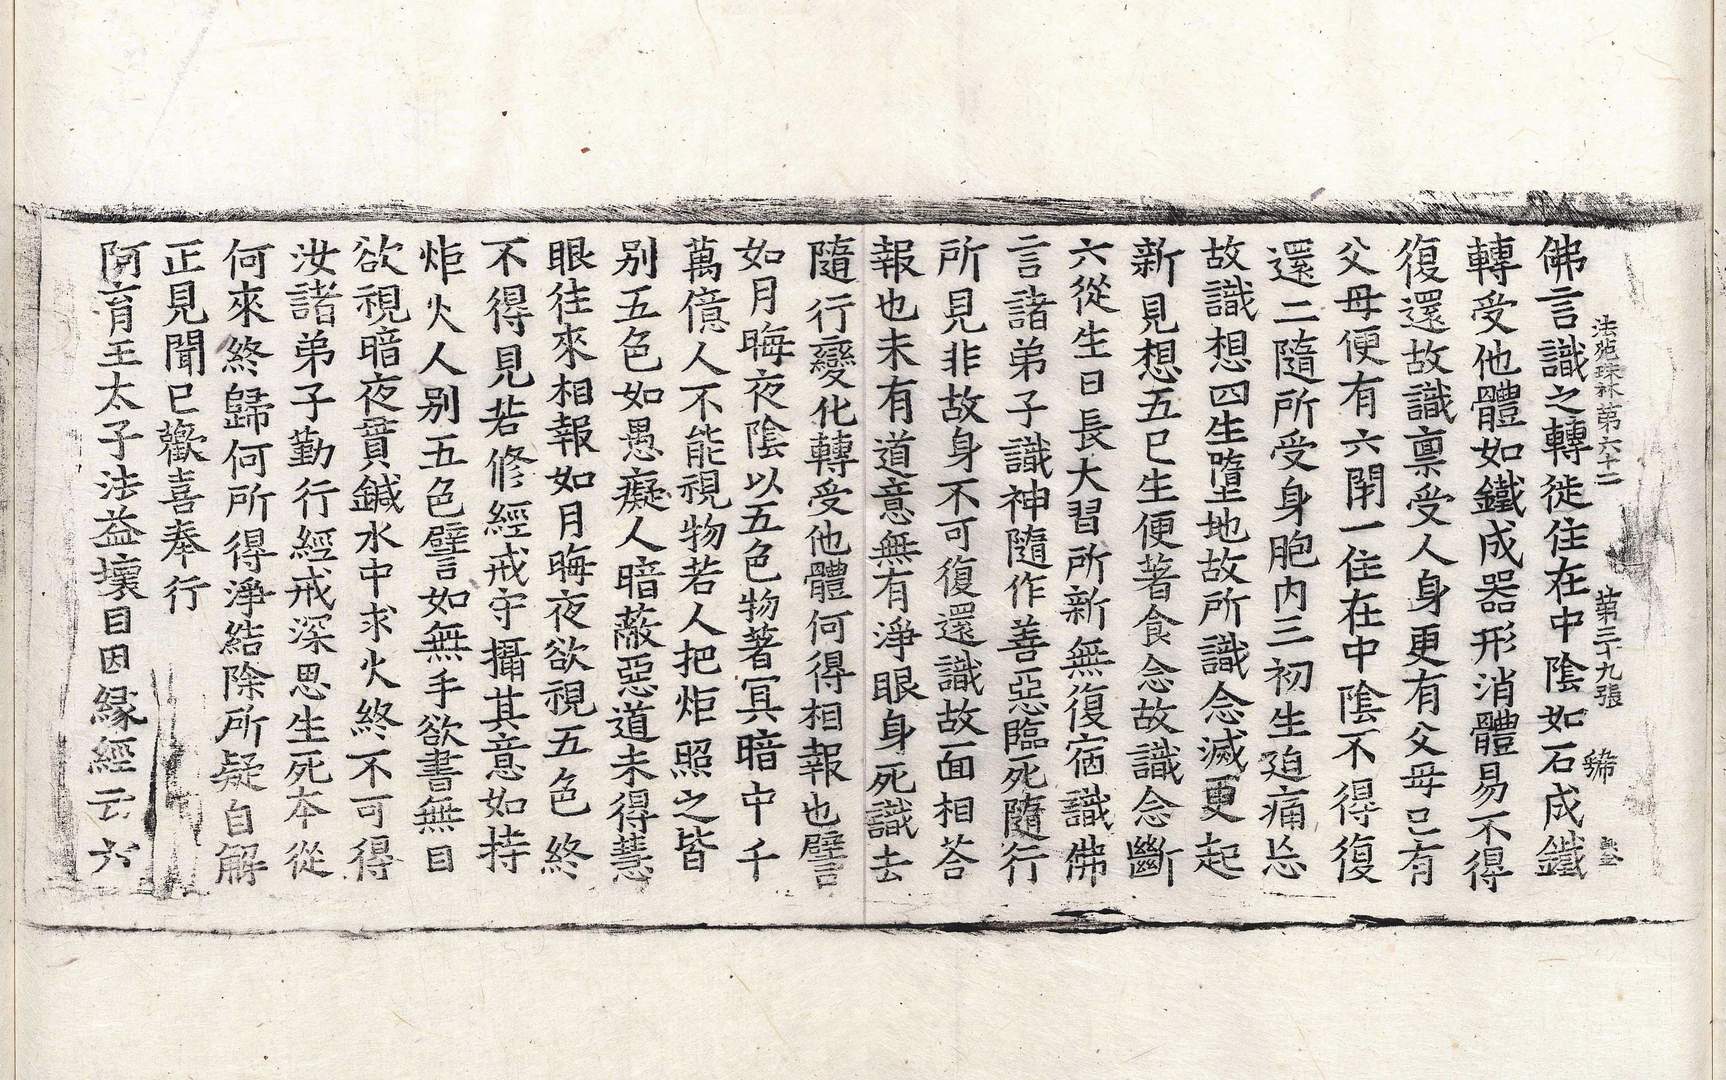 法苑珠林第六十二 第三十九張 緜
佛言識之轉徙住在中陰如石成鐵
轉受他體如鐵成器形消體易不得
復還故識稟受人身更有父母已有
父母便有六閉一住在中陰不得復
還二隨所受身胞內三初生迫痛忘
故識想四生墮地故所識念滅更起
新見想五已生便著食念故識念斷
六從生日長大習所新無復宿識佛
言諸弟子識神隨作善惡臨死隨行
所見非故身不可復還識故面相荅
報也未有道意無有淨眼身死識去
隨行變化轉受他體何得相報也譬
如月晦夜陰以五色物著冥暗中千
萬億人不能視物若人把炬照之皆
别五色如愚癡人暗蔽惡道未得慧
眼往來相報如月晦夜欲視五色終
不得見若修經戒守攝其意如持
炬火人别五色譬如無手欲書無目
欲視暗夜貫鍼水中求火終不可得
汝諸弟子勤行經戒深思生死本從
何來終歸何所得淨結除所疑自解
正見聞已歡喜奉行
阿育王太子法益壞目因緣經云六